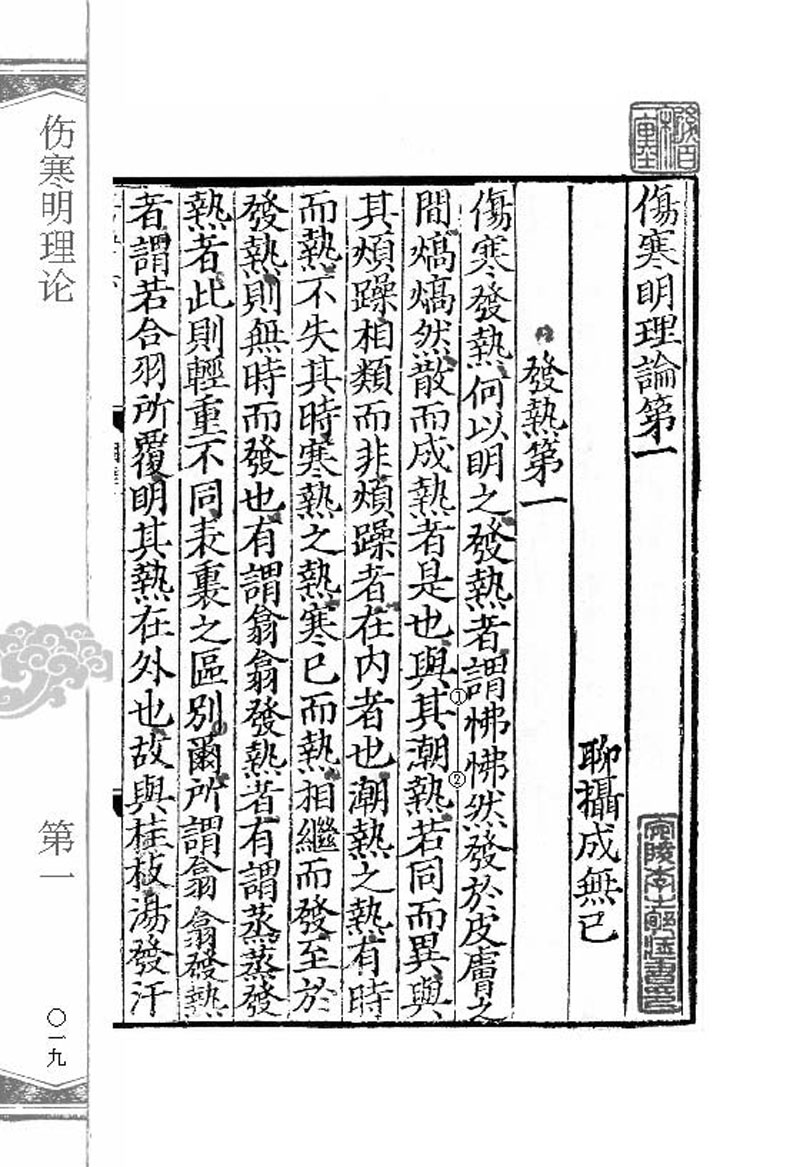 傷寒明理論第一
聊攝成無已
發熱第一
傷寒發熱何以明之發熱者謂怫怫然發於皮膚之
間熇熇然散而成熱者是也與其潮熱若同而異與
其煩躁相類而非煩躁者在內者也潮熱之熱有時
而熱不失其時寒熱之熱寒已而熱相繼而發至於
發熱則無時而發也有謂翕翕發熱者有謂蒸蒸發
熱者此則輕重不同表裏之區別爾所謂翕翕發熱
者謂若合羽所覆明其熱在外也故與桂枝湯發汗
①
②
伤寒明理论
第一
〇一九